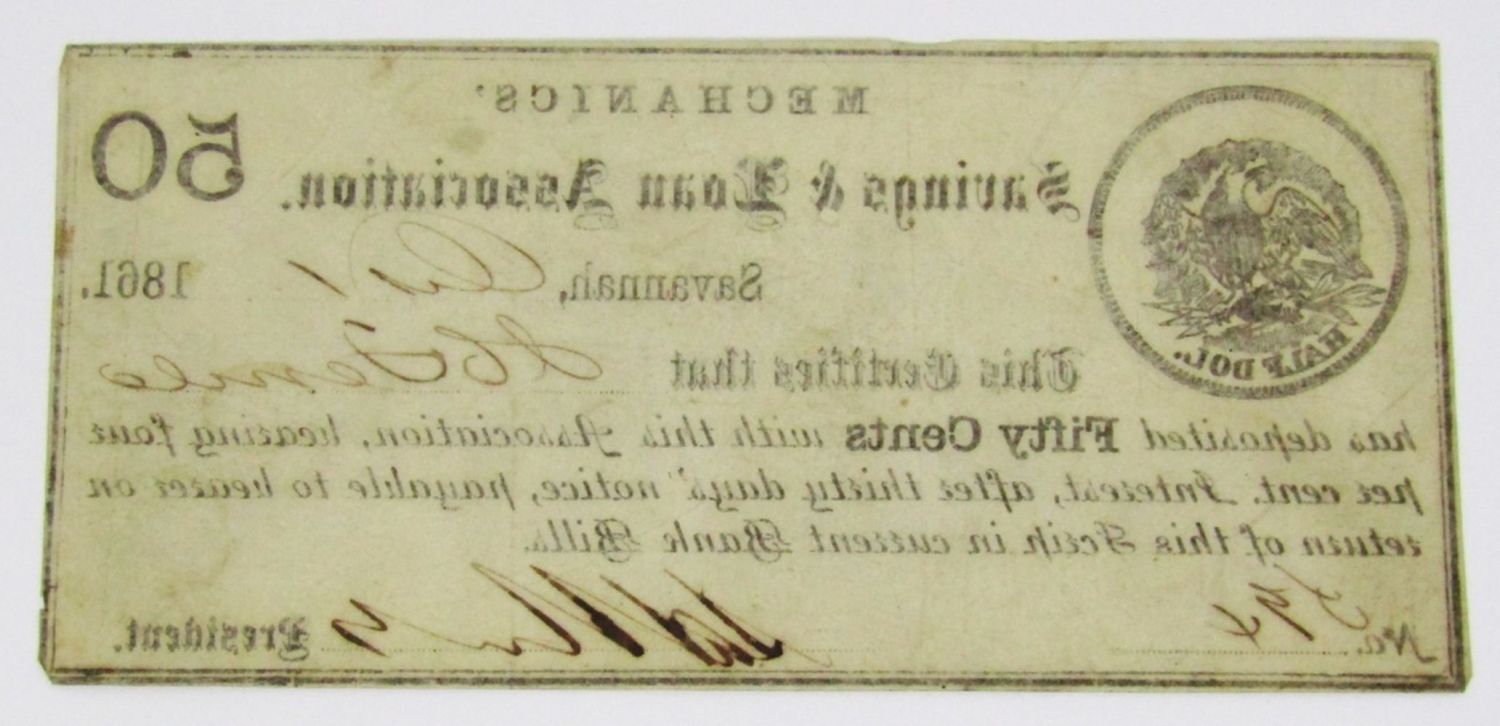 MECHANICS'
50
Savings & Loan Association.
Savannah, Oct 1 1861.
HALF DOL.
This Certifies that
has deposited Fifty Cents with this Association, bearing four
per cent. Interest, after, thirty days' notice, payable to bearer on
return of this Scrip in current Bank Bills.
No. 594
President.